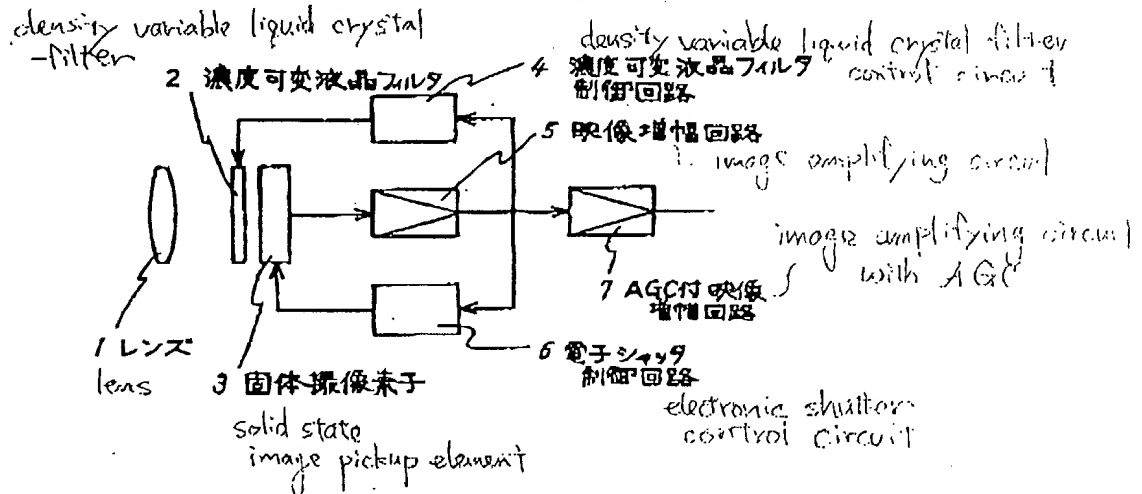 density variable liquid crystal
-filter
2 濃度可変液晶フィルタ
density variable liquid crystal filter
control circuit
4 濃度可変液晶フィルタ
制御回路
5 映像増幅回路
image amplifying circuit
image amplifying circuit
with AGC
7 AGC付映像
増幅回路
1 レンズ
lens
3 固体撮像素子
solid state
image pickup element
6 電子シャッタ
制御回路
electronic shutter
control circuit